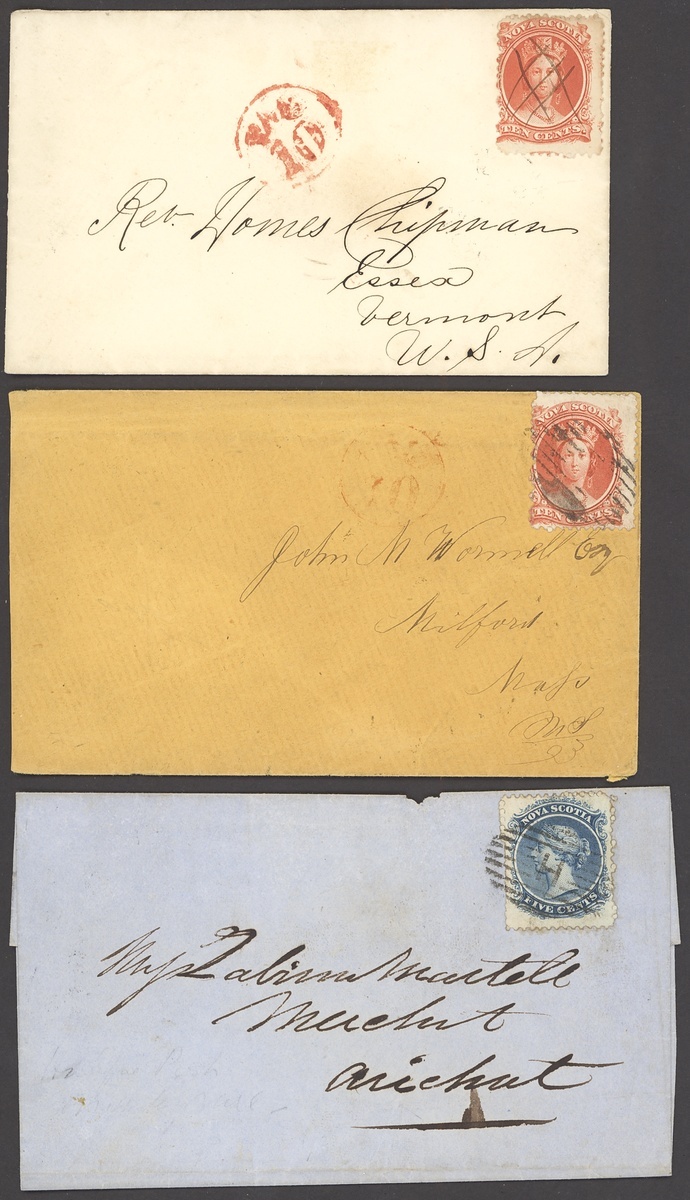 NOVA SCOTIA
TEN CENTS
PAID
10
Rev. Homes Chipman
Essex
Vermont
U. S. A.
NOVA SCOTIA
TEN CENTS
10
John M Wormell Esq
Milford
Mass
U S
NOVA SCOTIA
FIVE CENTS
Martell
Merchat
Arichat